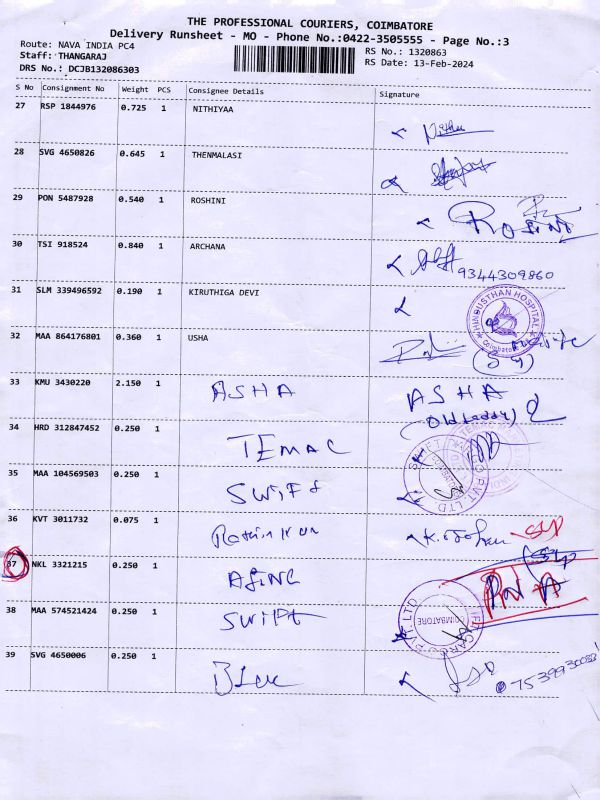 THE PROFESSIONAL COURIERS, COIMBATORE
Delivery Runsheet - MO - Phone No.:0422-3505555 - Page No.:3
Route: NAVA INDIA PC4
RS No.: 1320863
Staff: THANGARAJ
RS Date: 13-Feb-2024
DRS No.: DCJB132086303
S No Consignment No Weight PCS Consignee Details Signature
27 RSP 1844976 0.725 1 NITHIYAA
28 SVG 4650826 0.645 1 THENMALASI
29 PON 5487928 0.540 1 ROSHINI
30 TSI 918524 0.840 1 ARCHANA
9344309860
31 SLM 339496592 0.190 1 KIRUTHIGA DEVI
HINDUSTHAN HOSPITAL
Coimbatore
32 MAA 864176801 0.360 1 USHA
33 KMU 3430220 2.150 1 ASHA ASHA
(Old Laddy)
34 HRD 312847452 0.250 1 TEMAC
35 MAA 104569503 0.250 1 SWIFT
36 KVT 3011732 0.075 1
37 NKL 3321215 0.250 1
38 MAA 574521424 0.250 1 SWIFT
COIMBATORE
39 SVG 4650006 0.250 1